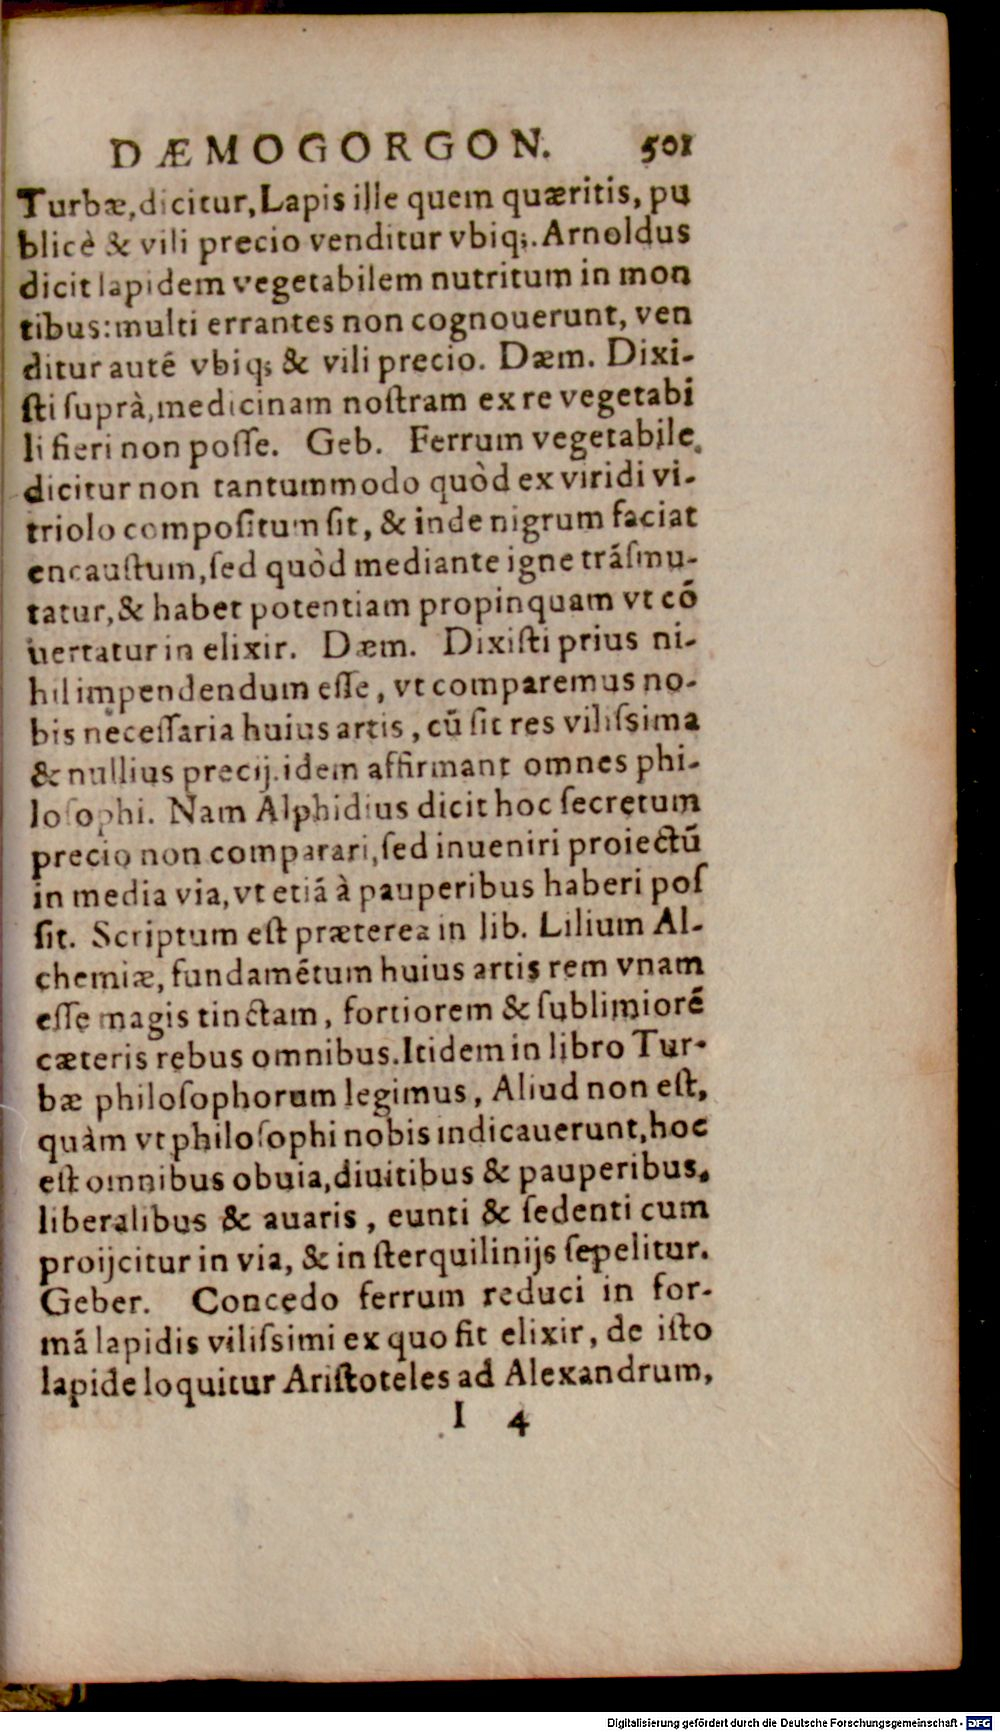 DÆMOGORGON. 501
Turbæ, dicitur, Lapis ille quem quæritis, pu
blicè & vili precio venditur vbiq;. Arnoldus
dicit lapidem vegetabilem nutritum in mon
tibus: multi errantes non cognouerunt, ven
ditur autē vbiq; & vili precio. Dæm. Dixi-
ſti ſuprà, medicinam noſtram ex re vegetabi
li fieri non poſſe. Geb. Ferrum vegetabile
dicitur non tantummodo quòd ex viridi vi-
triolo compoſitum ſit, & inde nigrum faciat
encauſtum, ſed quòd mediante igne trāſmu-
tatur, & habet potentiam propinquam vt cō
uertatur in elixir. Dæm. Dixiſti prius ni-
hil impendendum eſſe, vt comparemus no-
bis neceſſaria huius artis, cū ſit res viliſsima
& nullius precij. idem affirmant omnes phi-
loſophi. Nam Alphidius dicit hoc ſecretum
precio non comparari, ſed inueniri proiectū
in media via, vt etiā à pauperibus haberi poſ
ſit. Scriptum eſt præterea in lib. Lilium Al-
chemiæ, fundamētum huius artis rem vnam
eſſe magis tinctam, fortiorem & ſublimiorē
cæteris rebus omnibus. Itidem in libro Tur-
bæ philoſophorum legimus, Aliud non eſt,
quàm vt philoſophi nobis indicauerunt, hoc
eſt omnibus obuia, diuitibus & pauperibus,
liberalibus & auaris, eunti & ſedenti cum
proijcitur in via, & in ſterquilinijs ſepelitur.
Geber. Concedo ferrum reduci in for-
mā lapidis viliſsimi ex quo fit elixir, de iſto
lapide loquitur Ariſtoteles ad Alexandrum,
I 4
Digitalisierung gefördert durch die Deutsche Forschungsgemeinschaft - DFG